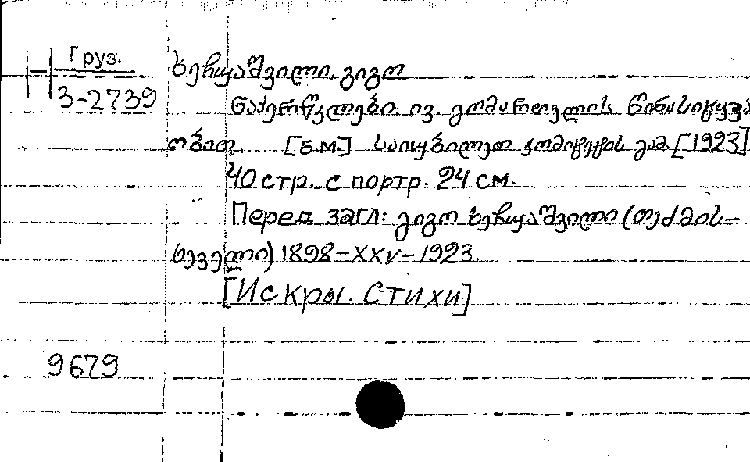 Груз.
3-2739
ხეჩუაშვილი, გიგო
ნაპერწკლები ივ. გომართელის წინასიტყვა
ობით [ა.მ] საიუბილეო კომიტეტის გამ. [1923]
40 стр. с портр. 24 см.
Перед загл: გიგო ხეჩუაშვილი (თეძმის-
ხეველი) 1898-XXV-1923
[Искры. Стихи]
9679